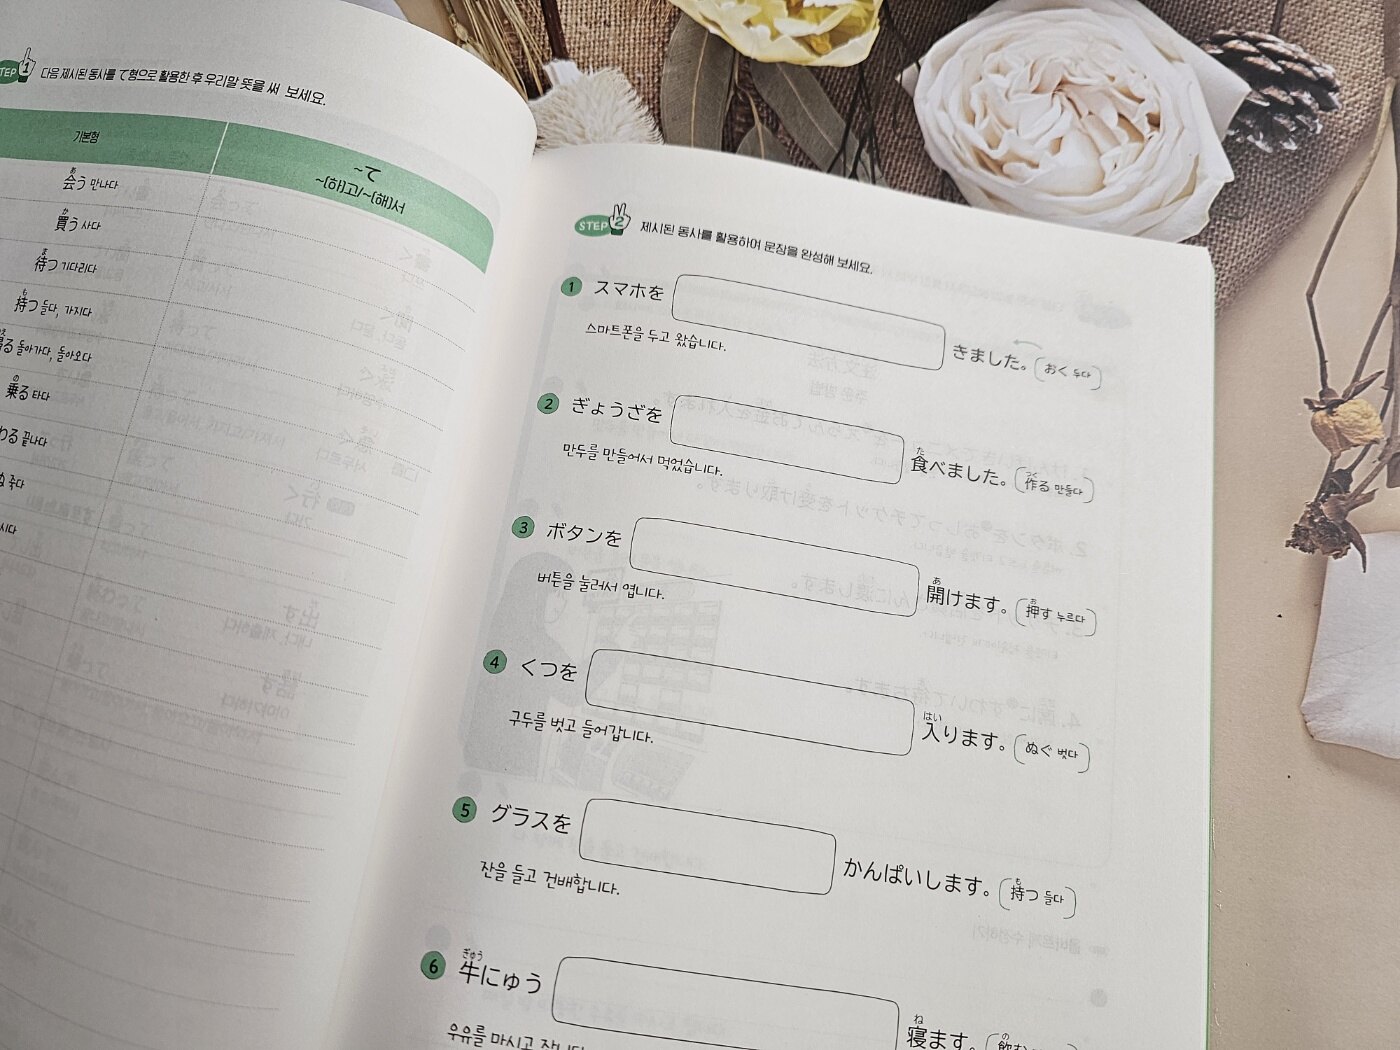 STEP 1 다음 제시된 동사를 て형으로 활용한 후 우리말 뜻을 써 보세요.
기본형
~て
~(하)고/~(해)서
会う 만나다
買う 사다
待つ 기다리다
持つ 들다, 가지다
る 돌아가다, 돌아오다
乗る 타다
わる 끝나다
ぬ 죽다
STEP 2 제시된 동사를 활용하여 문장을 완성해 보세요.
1 スマホを きました。(おく 두다)
스마트폰을 두고 왔습니다.
2 ぎょうざを 食べました。(作る 만들다)
만두를 만들어서 먹었습니다.
3 ボタンを 開けます。(押す 누르다)
버튼을 눌러서 엽니다.
4 くつを 入ります。(ぬぐ 벗다)
구두를 벗고 들어갑니다.
5 グラスを かんぱいします。(持つ 들다)
잔을 들고 건배합니다.
6 牛にゅう 寝ます。(飲む
우유를 마시고